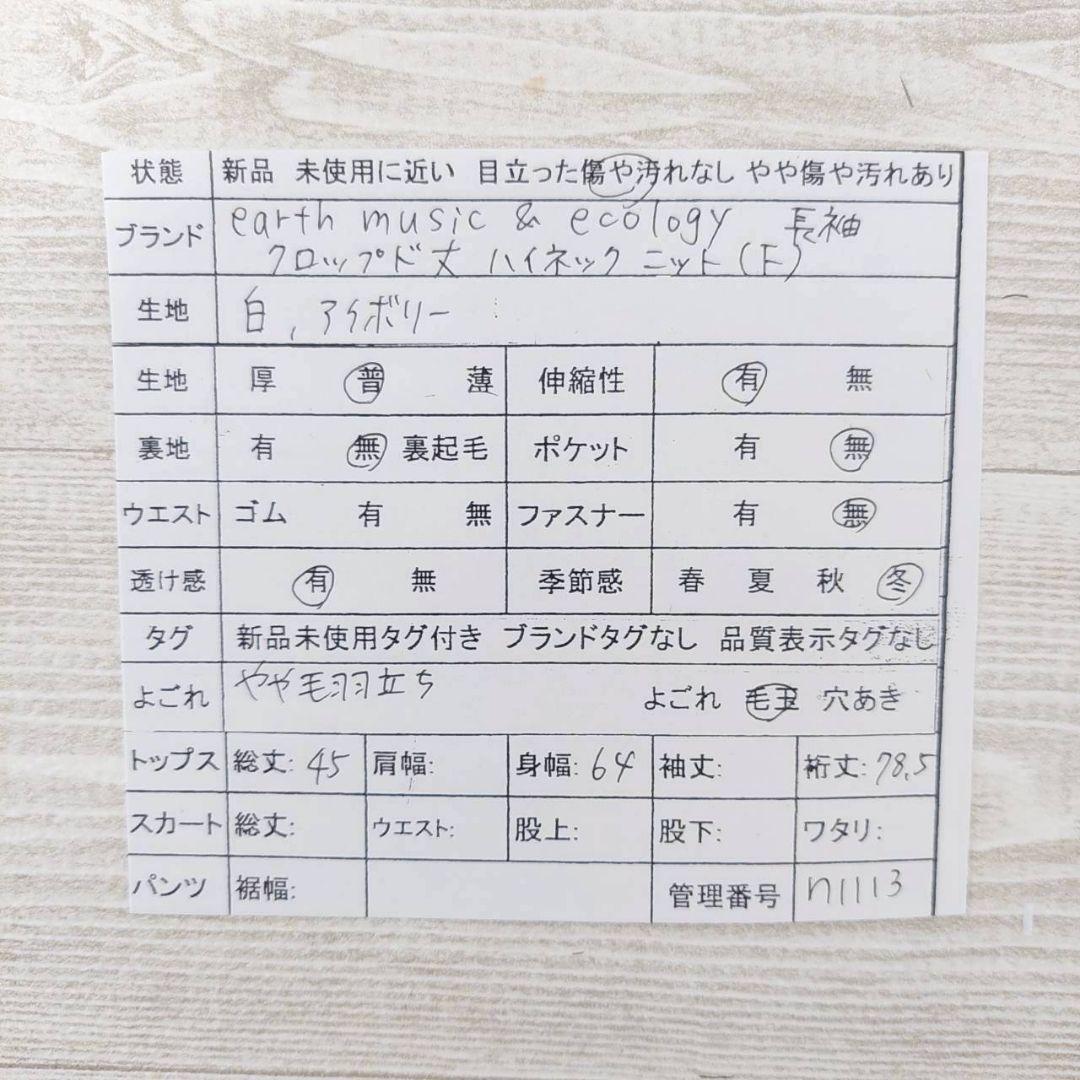 状態 新品 未使用に近い 目立った傷や汚れなし やや傷や汚れあり
ブランド earth music & ecology 長袖
クロップド丈 ハイネック ニット(F)
生地 白、アイボリー
生地 厚 普 薄 伸縮性 有 無
裏地 有 無 裏起毛 ポケット 有 無
ウエスト ゴム 有 無 ファスナー 有 無
透け感 有 無 季節感 春 夏 秋 冬
タグ 新品未使用タグ付き ブランドタグなし 品質表示タグなし
よごれ やや毛羽立ち よごれ 毛玉 穴あき
トップス 総丈: 45 肩幅: 身幅: 64 袖丈: 裄丈: 78.5
スカート 総丈: ウエスト: 股上: 股下: ワタリ:
パンツ 裾幅: 管理番号 n1113